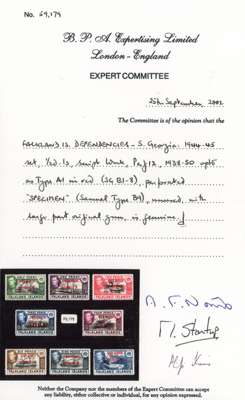 No. 69,179
B. P. A. Expertising Limited
London - England
EXPERT COMMITTEE
25th September 2002
The Committee is of the opinion that the
FALKLAND IS. DEPENDENCIES - S. Georgia: 1944-45
set, 1/2d.-1s, Script Wmk, Perf 12, 1938-50 opts
as Type A1 in red (SG B1-8), perforated
"SPECIMEN" (Samuel Type B9), unused, with
large part original gum, is genuine.
FALKLAND ISLANDS
FALKLAND ISLANDS
FALKLAND ISLANDS
FALKLAND ISLANDS
69,179
FALKLAND ISLANDS
FALKLAND ISLANDS
FALKLAND ISLANDS
FALKLAND ISLANDS
Neither the Company nor the members of the Expert Committee can accept
any liability, either collective or individual, for any opinion expressed.